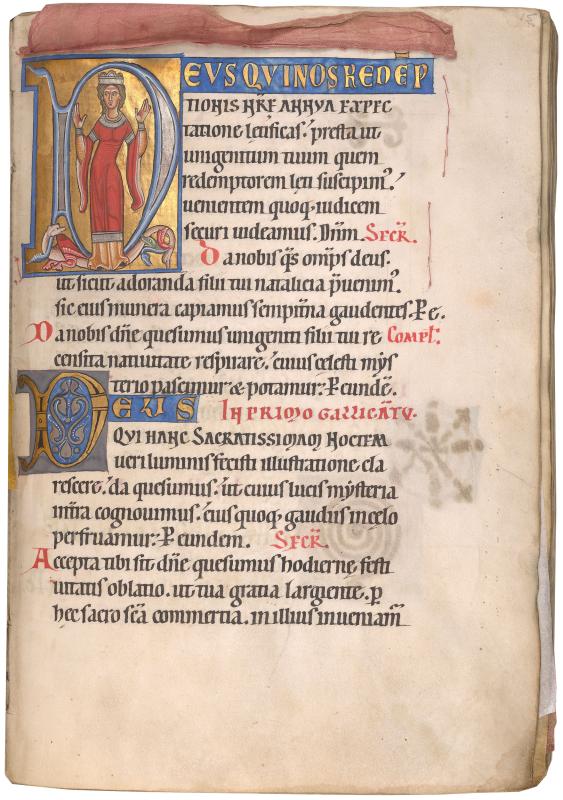 DEVS QVI NOS REDEP
TIONIS NRE ANNVA EXPEC
tatione letificas. presta ut
unigenitum tuum quem
redemptorem leti suscipim᷒.
uenientem quoq; iudicem
securi uideamus. Dnm. Secr̄.
Da nobis q̄s omp̄s deus.
ut sicut adoranda filii tui natalicia p̄uenim᷒.
sic eius munera capiamus sempit̄na gaudentes. P e.
Da nobis dn̄e quesumus unigeniti filii tui re Compl̄:
censita natiuitate respirare. cuius celesti mys
terio pascimur & potamur. P eundē.
DEUS IN PRIMO GALLICANTV.
QVI HANC SACRATISSIMAM NOCTEM
ueri luminis fecisti illustratione cla
rescere. da quesumus. ut cuius lucis mysteria
in tr̄a cognouimus. eius quoq; gaudiis in celo
perfruamur. P eundem. Secr̄.
Accepta tibi sit dn̄e quesumus hodierne festi
uitatis oblatio. ut tua gratia largiente. p
hec sacro sc̄a commertia. in illius inueniam̄